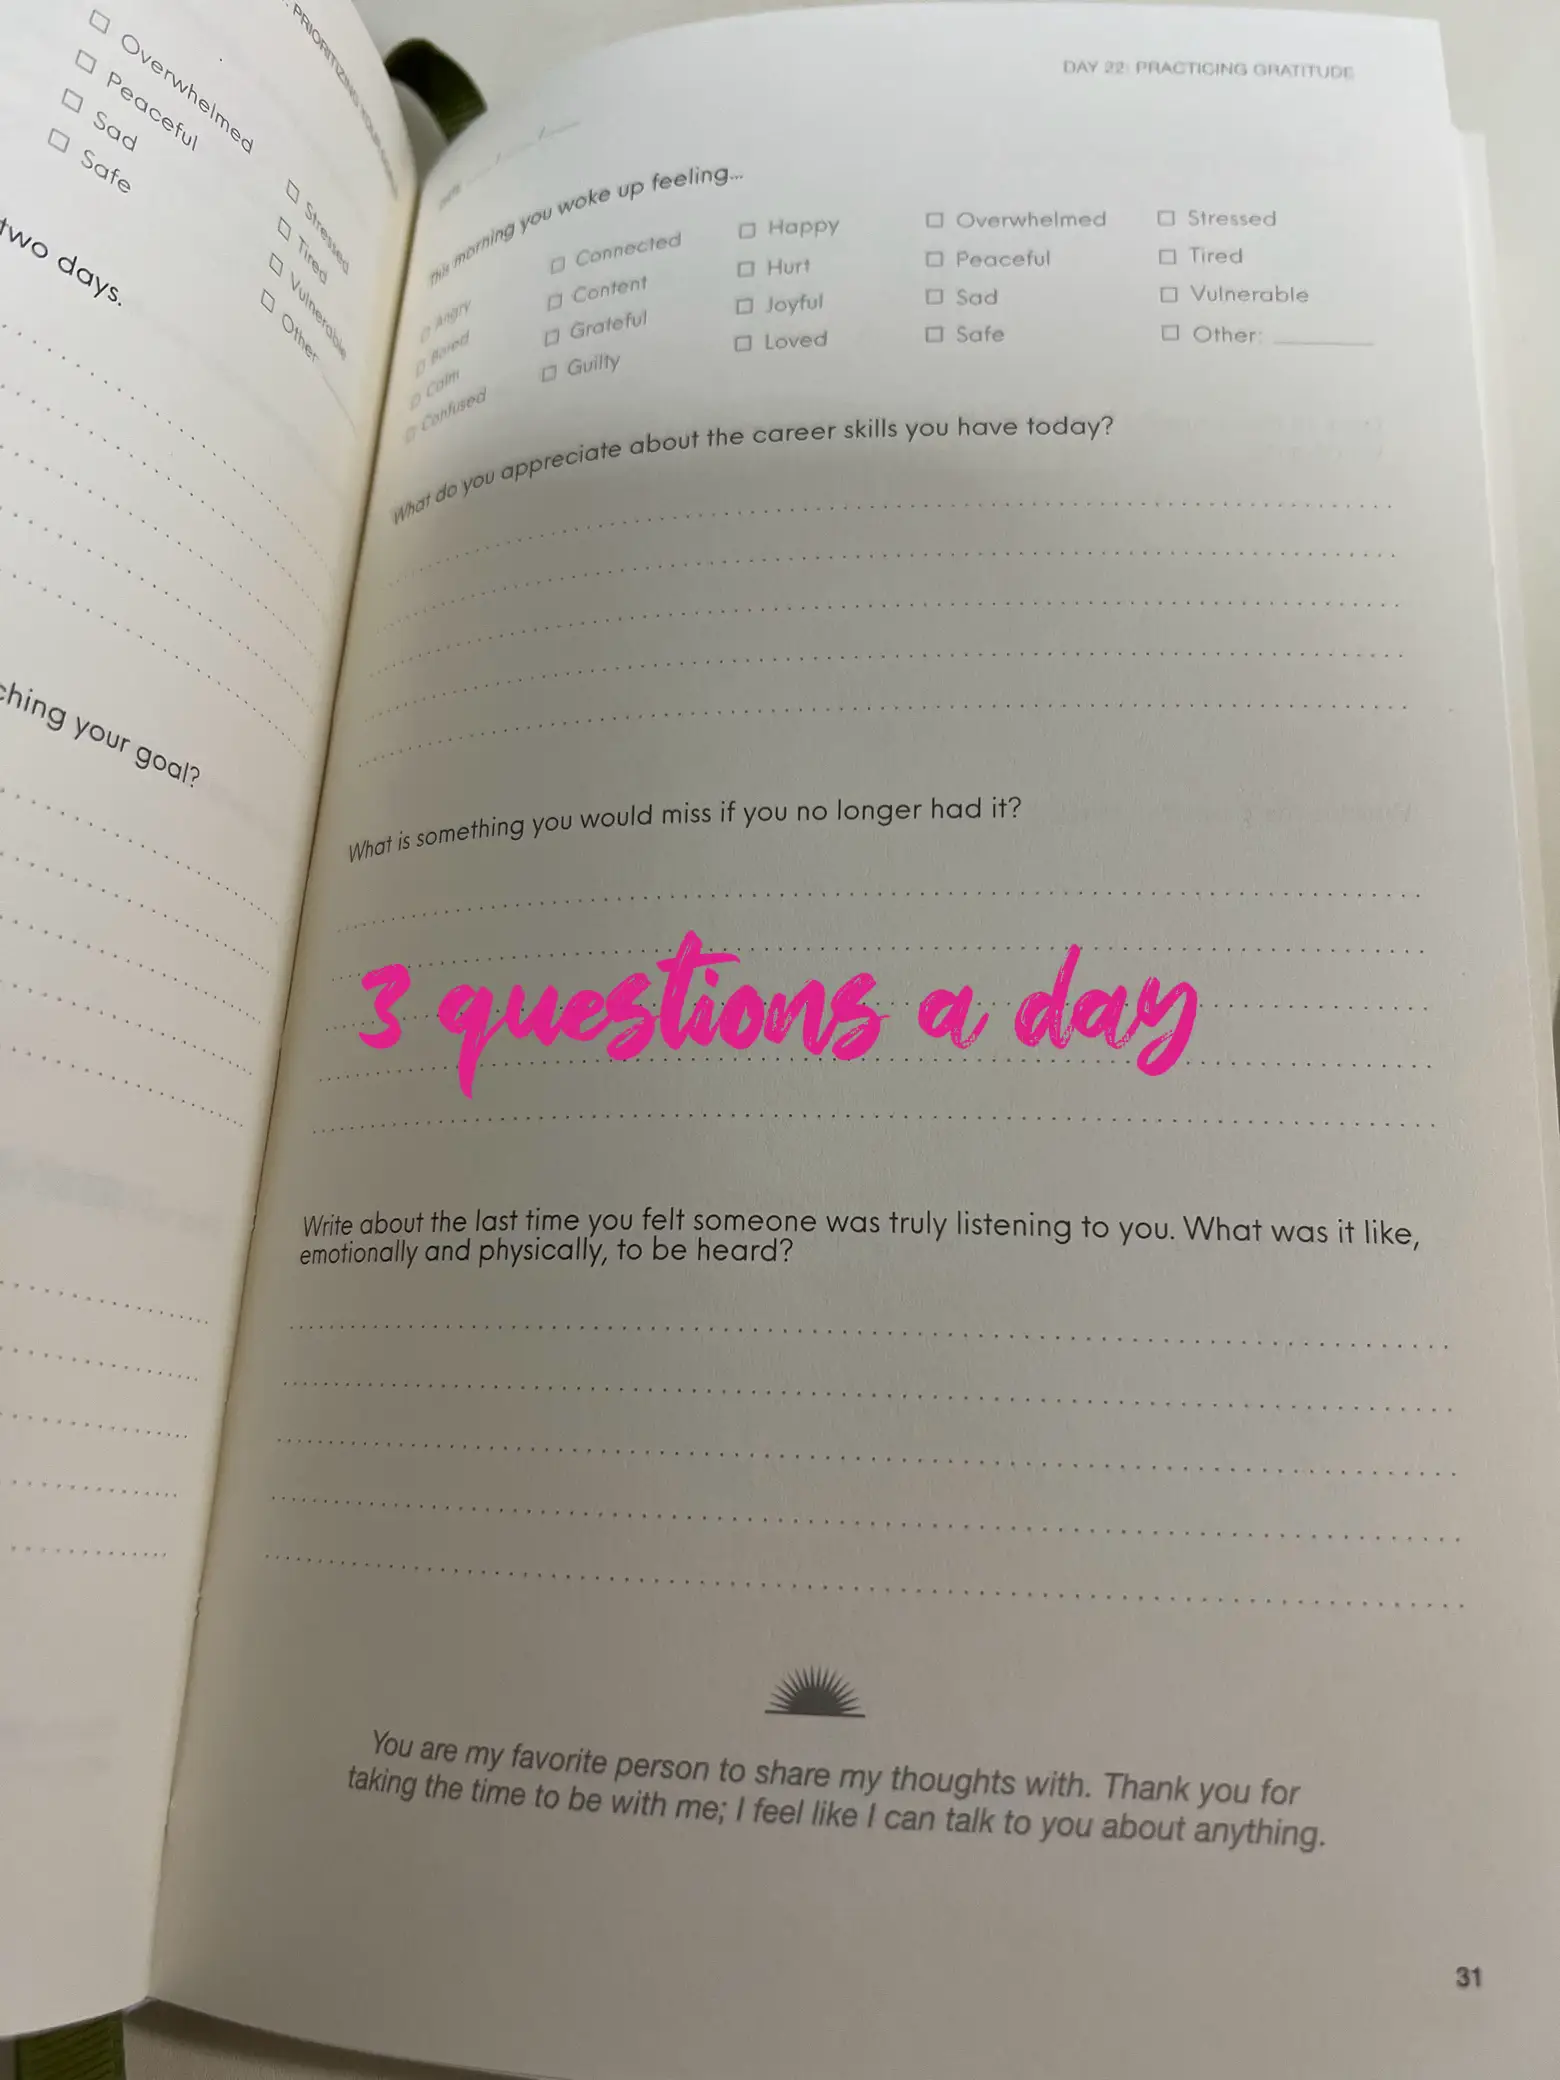 PRIORITIZING YOUR
Overwhelmed
Peaceful
Sad
Safe
Stressed
Tired
Vulnerable
Other:
two days.
ching your goal?
DAY 22: PRACTICING GRATITUDE
DATE
This morning you woke up feeling...
Angry
Bored
Calm
Confused
Connected
Content
Grateful
Guilty
Happy
Hurt
Joyful
Loved
Overwhelmed
Peaceful
Sad
Safe
Stressed
Tired
Vulnerable
Other:
What do you appreciate about the career skills you have today?
What is something you would miss if you no longer had it?
3 questions a day
Write about the last time you felt someone was truly listening to you. What was it like,
emotionally and physically, to be heard?
You are my favorite person to share my thoughts with. Thank you for
taking the time to be with me; I feel like I can talk to you about anything.
31